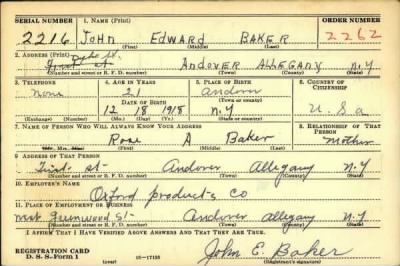 SERIAL NUMBER 1. NAME (Print) ORDER NUMBER
2216 JOHN EDWARD BAKER 2262
(First) (Middle) (Last)
2. ADDRESS (Print)
First St ANDOVER ALLEGANY N.Y
(Number and street or R. F. D. number) (Town) (County) (State)
3. TELEPHONE 4. AGE IN YEARS 5. PLACE OF BIRTH 6. COUNTRY OF CITIZENSHIP
None 21 Andover
DATE OF BIRTH (Town or county)
12 18 1918 N.Y U S a
(Exchange) (Number) (Mo.) (Day) (Yr.) (State or country)
7. NAME OF PERSON WHO WILL ALWAYS KNOW YOUR ADDRESS 8. RELATIONSHIP OF THAT PERSON
Rose A Baker Mother
(Mr., Mrs., Miss) (First) (Middle) (Last)
9. ADDRESS OF THAT PERSON
First St Andover Allegany N.Y
(Number and street or R. F. D. number) (Town) (County) (State)
10. EMPLOYER'S NAME
Oxford products Co
11. PLACE OF EMPLOYMENT OR BUSINESS
West Greenwood St Andover allegany N.Y
(Number and street or R. F. D. number) (Town) (County) (State)
I AFFIRM THAT I HAVE VERIFIED ABOVE ANSWERS AND THAT THEY ARE TRUE.
REGISTRATION CARD
D. S. S. Form 1 (over) 16-17105 John E. Baker
(Registrant's signature)